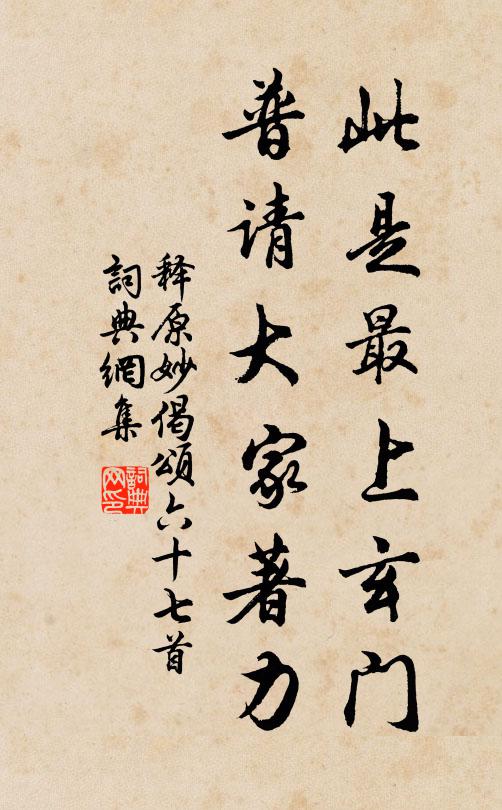 此是最上玄门
普请大家著力
释原妙偈頌六十七首
詞典網集
詞典网印